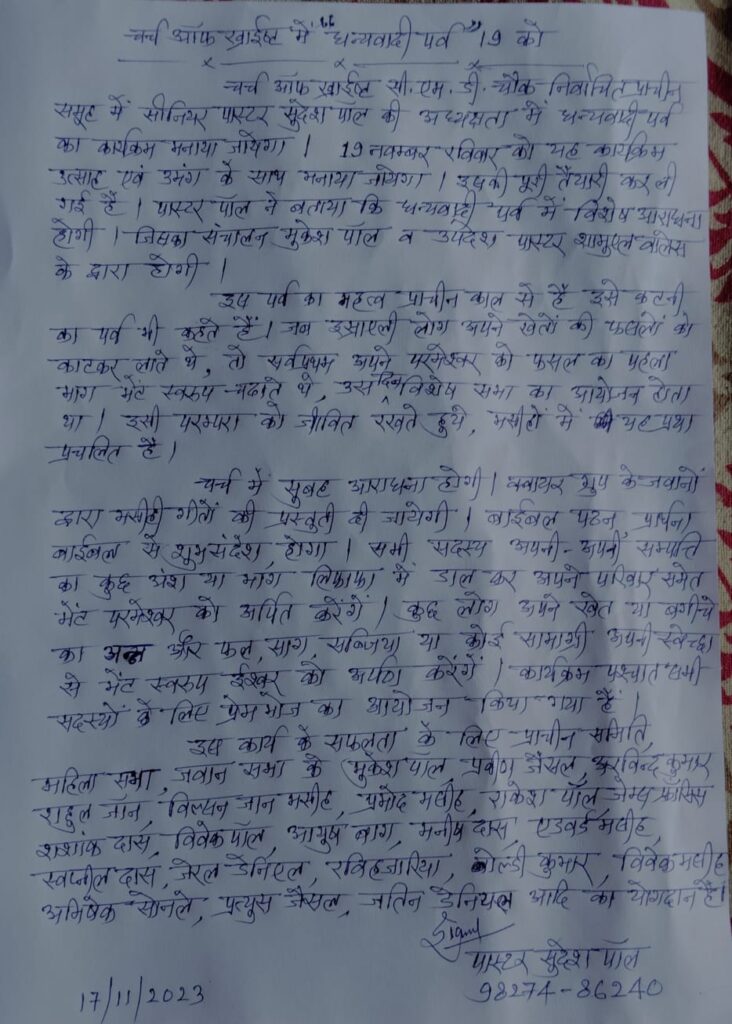 चर्च ऑफ ख्राईष्ट में "धन्यवादी पर्व" 19 को
चर्च ऑफ ख्राईष्ट सी. एम. डी. चौक निर्वाचित प्राचीन
समूह में सीनियर पास्टर सुदेश पॉल की अध्यक्षता में धन्यवादी पर्व
का कार्यक्रम मनाया जायेगा। 19 नवम्बर रविवार को यह कार्यक्रम
उत्साह एवं उमंग के साथ मनाया जायेगा। इसकी पूरी तैयारी कर ली
गई है। पास्टर पॉल ने बताया कि धन्यवादी पर्व में विशेष आराधना
होगी। जिसका संचालन मुकेश पॉल व उपदेश पास्टर शामुएल वॉलेस
के द्वारा होगी।
इस पर्व का महत्व प्राचीन काल से है इसे कटनी
का पर्व भी कहते हैं। जब इस्राएली लोग अपने खेतों की फसलों को
काटकर लाते थे, तो सर्वप्रथम अपने परमेश्वर को फसल का पहला
भाग भेंट स्वरूप चढाते थे, उस दिन विशेष सभा का आयोजन होता
था। इसी परम्परा को जीवित रखते हुये, मसीहों में यह प्रथा
प्रचलित है।
चर्च में सुबह आराधना होगी। क्वायर ग्रुप के जवानों
द्वारा मसीही गीतों की प्रस्तुती दी जायेगी। बाईबल पठन, प्रार्थना
बाईबल से शुभसंदेश होगा। सभी सदस्य अपनी-अपनी सम्पत्ति
का कुछ अंश या भाग लिफाफा में डाल कर अपने परिवार समेत
भेंट परमेश्वर को अर्पित करेंगें। कुछ लोग अपने खेत या बगीचे
का अन्न और फल, साग, सब्जिया या कोई सामाग्री अपनी स्वेच्छा
से भेंट स्वरूप ईश्वर को अर्पण करेंगें। कार्यक्रम पश्चात सभी
सदस्यों के लिए प्रेम भोज का आयोजन किया गया हैं।
इस कार्य के सफलता के लिए प्राचीन समिति,
महिला सभा, जवान सभा के मुकेश पॉल, प्रवीण जैसल, अरविन्द कुमार
राहुल जॉन, विल्सन जान मसीह, प्रमोद मसीह, राकेश पॉल जेम्स फ्रांसिस
शशांक दास, विवेक पॉल, आयुष बाग, मनीष दास, एडवर्ड मसीह,
स्वप्नील दास, जेरल डेनिएल, रवि हजारिया, गोल्डी कुमार, विवेक मसीह
अभिषेक सोनले, प्रत्युस जैसल, जतिन डेनियल आदि का योगदान है।
पास्टर सुदेश पॉल
17/11/2023 98274-86240